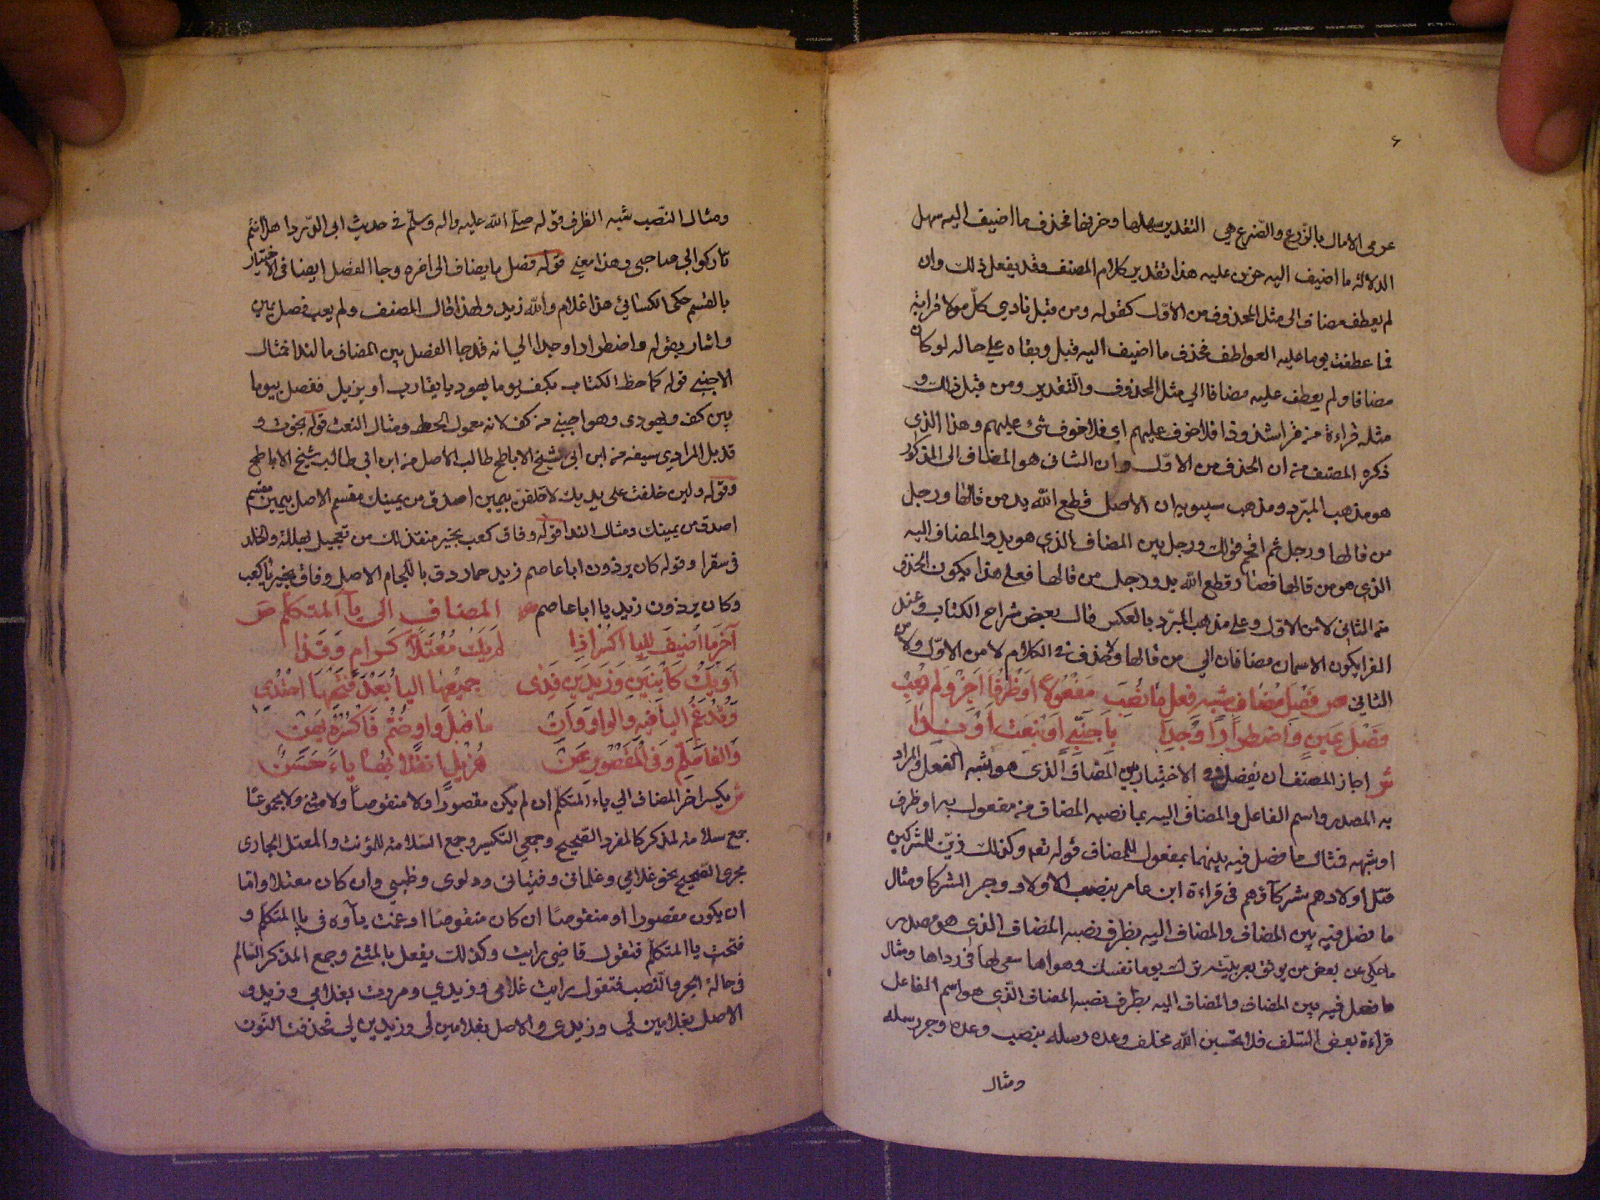 عرمى الامال بالزرع والضرع هي التقدير سهلها وحزنها فحذف ما اضيف اليه سهل
الدلالة ما اضيف اليه حزن عليه هذا تقدير كلام المصنف وقد يفعل ذلك وان
لم يعطف مضاف الى مثل المحذوف من الاول كقوله ومن قبل نادى كل مولا قرابة
فما عطفت يوما عليه العواطف فحذف ما اضيف اليه قبل وبقاه على حاله لو كان
مضافا ولم يعطف عليه مضافا الى مثل المحذوف والتقدير ومن قبل ذلك و
مثله قراءة من قرا شذوذا فلا خوف عليهم اي فلا خوف شئ عليهم وهذا الذي
ذكره المصنف من ان الحذف من الاول وان الثاني هو المضاف الى المذكور
هو مذهب المبرد ومذهب سيبويه ان الاصل قطع الله يد من قالها ورجل
من قالها ورجل ثم اقحم قولك ورجل بين المضاف الذي هو يد والمضاف اليه
الذي هو من قالها فصار قطع الله يد ورجل من قالها فعلى هذا يكون الحذف
من الثاني لا من الاول وعلى مذهب المبرد بالعكس قال بعض شراح الكتاب وعند
الفرا يكون الاسمان مضافان الى من قالها ولا حذف في الكلام لا من الاول ولا من
الثاني ص فصل مضاف شبه فعل ما نصب مفعولا او ظرفا اجز ولم يعب
فصل يمين واضطرارا وجدا باجنبي او بنعت او ندا
ش اجاز المصنف ان يفصل في الاختيار بين المضاف الذي هو شبه الفعل والمراد
به المصدر واسم الفاعل والمضاف اليه بما نصبه المضاف من مفعول به او ظرف
او شبهه فمثال ما فصل فيه بينهما بمفعول المضاف قوله تعه وكذلك زين للمشركين
قتل اولادهم شركآؤهم في قراءة ابن عامر بنصب الاولاد وجر الشركا ومثال
ما فصل فيه بين المضاف والمضاف اليه بظرف نصبه المضاف الذي هو مصدر
ما حكي عن بعض من يوثق بعربيته ترك يوما نفسك وهواها سعي لها في رداها ومثال
ما فصل فيه بين المضاف والمضاف اليه بظرف نصبه المضاف الذي هو اسم الفاعل
قراءة بعض السلف فلا تحسبن الله مخلف وعده رسله بنصب وعده وجر رسله
ومثال
ومثال النصب شبه الظرف قوله صلى الله عليه واله وسلم في حديث ابي الدردا هل انتم
تاركوا لي صاحبي وهذا معني قوله فصل ما يضاف الى اخره وجا الفصل ايضا في الاختيار
بالقسم حكى الكسائي هذا غلام والله زيد ولهذا قال المصنف ولم يعب فصل يمين
واشار بقوله واضطرارا وجدا الى انه قد جا الفصل بين المضاف ما لندا فمثال
الاجنبي قوله كما خط الكتاب بكف يوما يهودي يقارب او يزيل ففصل بيوما
بين كف ويهودي وهو اجنبي من كف لانه معمول لخط ومثال النعت قوله نجوت و
قد بل المرادي سيفه من ابن ابي شيخ الاباطح طالب الاصل من ابن ابي طالب شيخ الاباطح
وقوله ولين حلفت على يديك لاحلفن بيمين اصدق من يمينك مقسم الاصل بيمين مقسم
اصدق من يمينك ومثال الندا قوله وفاق كعب بجير منقذ لك من تعجيل تهلكة والخلد
في سقرا وقوله كان برذون ابا عاصم زيد حمار دق باللجام الاصل وفاق بجير يا كعب
وكان برذون زيد يا ابا عاصم ص المضاف الى يآ المتكلم
آخر ما اضيف لليا اكسر اذا لم يك معتلا كرام وقذا
او يك كابنين وزيدين فذي جميعها اليا بعد فتحها احتذي
وتدغم اليا فيه والواو وان ما قبل واو ضم فاكسره يهن
والفا سلم وفي المقصور عن هذيل انقلابها ياء حسن
ش يكسر اخر المضاف الى ياء المتكلم ان لم يكن مقصورا ولا منقوصا ولا مثنى ولا مجموعا
جمع سلامة لمذكر كالمفرد الصحيح وجمعي التكسير وجمع السلامة للمؤنث والمعتل الجاري
مجرى الصحيح نحو غلامي وغلماني وفتياتي ودلوي وظبيي وان كان معتلا واما
ان يكون مقصورا او منقوصا ان كان منقوصا ادغمت يآوه في يا المتكلم و
فتحت يا المتكلم فتقول قاضي رايت وكذلك يفعل بالمثنى وجمع المذكر السالم
في حالة الجر والنصب فتقول رايت غلامي وزيدي ومررت بغلامي وزيدي و
الاصل بغلامين لي وزيدي والاصل بغلامين لي وزيدين لي فحذفت النون